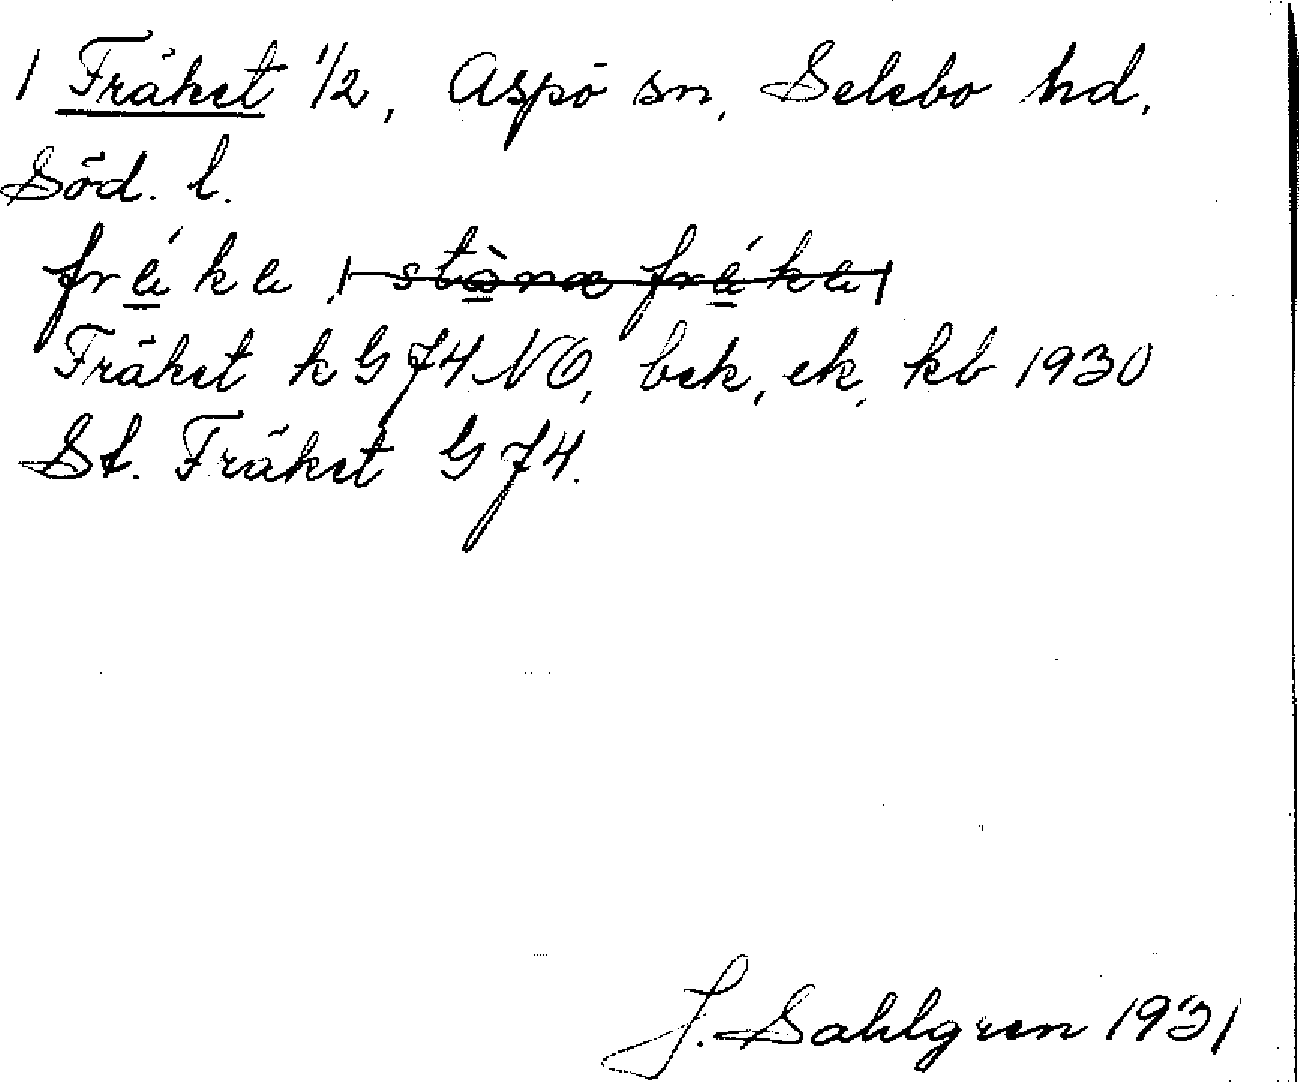 1 Fräket 1/2, Aspö sn, Selebo hd,
Söd. l.
fräke, stòræ fräke
Fräket k G 74 NO, bek, ek, kb 1930
St. Fräket G 74.
J. Sahlgren 1931